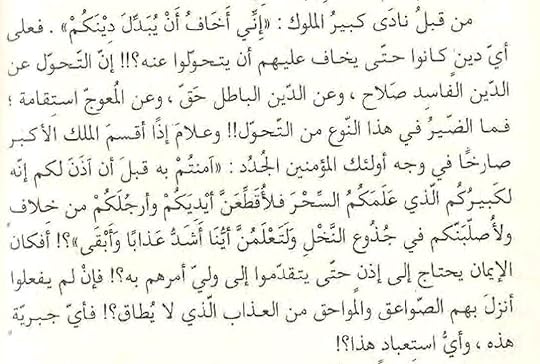 من قبلُ نادَى كبيرُ الملوك : «إنِّي أَخَافُ أَنْ يُبَدِّلَ دِيْنَكُمْ» . فعلى
أيِّ دينٍ كـانوا حتّـى يخاف عليهم أن يتحوّلوا عنه؟!! إنّ التّحوّل عن
الدّين الفَاسِد صَلاح ، وعن الدّين الباطل حَقّ ، وعن المُعوجّ استِقامة ؛
فـمـا الضّـيرُ في هذا النّوع من التّحوّل!! وعـلامَ إذًا أقـسـمَ الملك الأكـبر
صارخًا في وجه أولئك المؤمنين الجُدُد : «آمنتُمْ به قبلَ أن آذَنَ لكم إنّه
لكَبيرُكُم الّذي عَلّمَكُمُ السِّحْرَ فـلأُقَطِّعَنَّ أَيْدِيَكُمْ وأرجُلَكُمْ من خِلافٍ
ولأُصلّبَنّكم في جُذُوعِ النَّخْلِ وَلَتَعْلَمُنَّ أيُّنَا أَشَدُّ عَذابًا وَأَبْقَى»؟! أفكان
الإيمان يحتاج إلى إذنٍ حتّى يتقدّموا إلى وليّ أمرهم به؟! فإنْ لم يفعلوا
أنزلَ بهم الصّواعق والمواحق من العذاب الّذي لا يُطاق؟! فـأيّ جـبريّة
هذه ، وأيُّ استِعباد هذا؟!